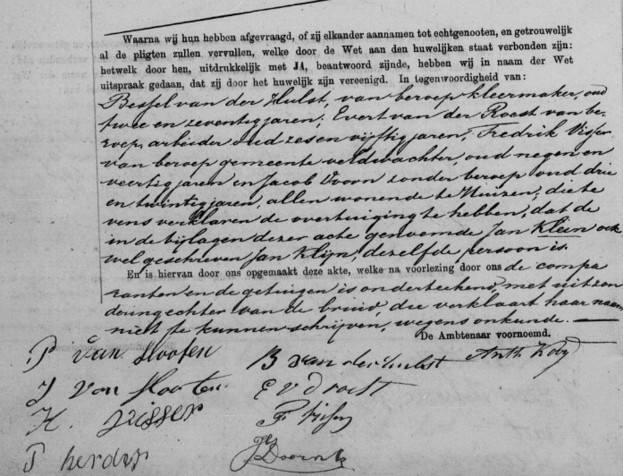 Waarna wij hun hebben afgevraagd, of zij elkander aannamen tot echtgenooten, en getrouwelijk
al de pligten zullen vervullen, welke door de Wet aan den huwelijken staat verbonden zijn:
hetwelk door hen, uitdrukkelijk met JA, beantwoord zijnde, hebben wij in naam der Wet
uitspraak gedaan, dat zij door het huwelijk zijn vereenigd. In tegenwoordigheid van:
Bessel van der Hulst, van beroep kleermaker, oud
twee en zeventig jaren; Evert van der Roest van be-
roep, arbeider oud zes en vijftig jaren; Fredrik Visser
van beroep gemeente veldwachter, oud negen en
veertig jaren en Jacob Doorn zonder beroep oud drie
en twintig jaren, allen wonende te Huizen, die te
vens verklaren de overtuiging te hebben, dat de
in de bijlagen dezer acte genoemde Jan Kleen ook
wel geschreven Jan Klijn, dezelfde persoon is.
En is hiervan door ons opgemaakt deze akte, welke na voorlezing door ons de compa
ranten en de getuigen is onderteekend, met uitzon
dering echter van de bruid, die verklaart haar naam
niet te kunnen schrijven, wegens onkunde.
De Ambtenaar voornoemd.
P van Hooten B van der Hulst Anth
J Von Hooten. E v d roest
K. Visser F Visser
P J Doorn